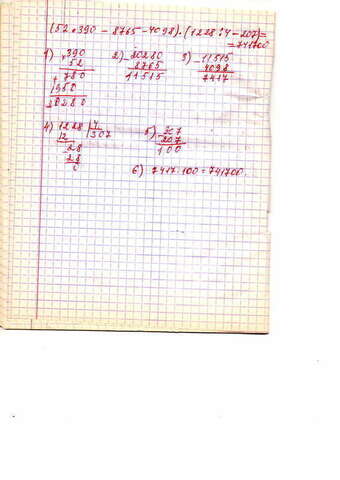 (52 × 390 - 8765 - 4098) · (1228 : 4 - 207) =
= 741700
1) × 390 2) - 20280 3) - 11515
52 8765 4098
780 11515 7417
+ 1950
20280
4) 1228 | 4 5) - 307
12 | 307 207
28 100
28 6) 7417 · 100 = 741700.
0